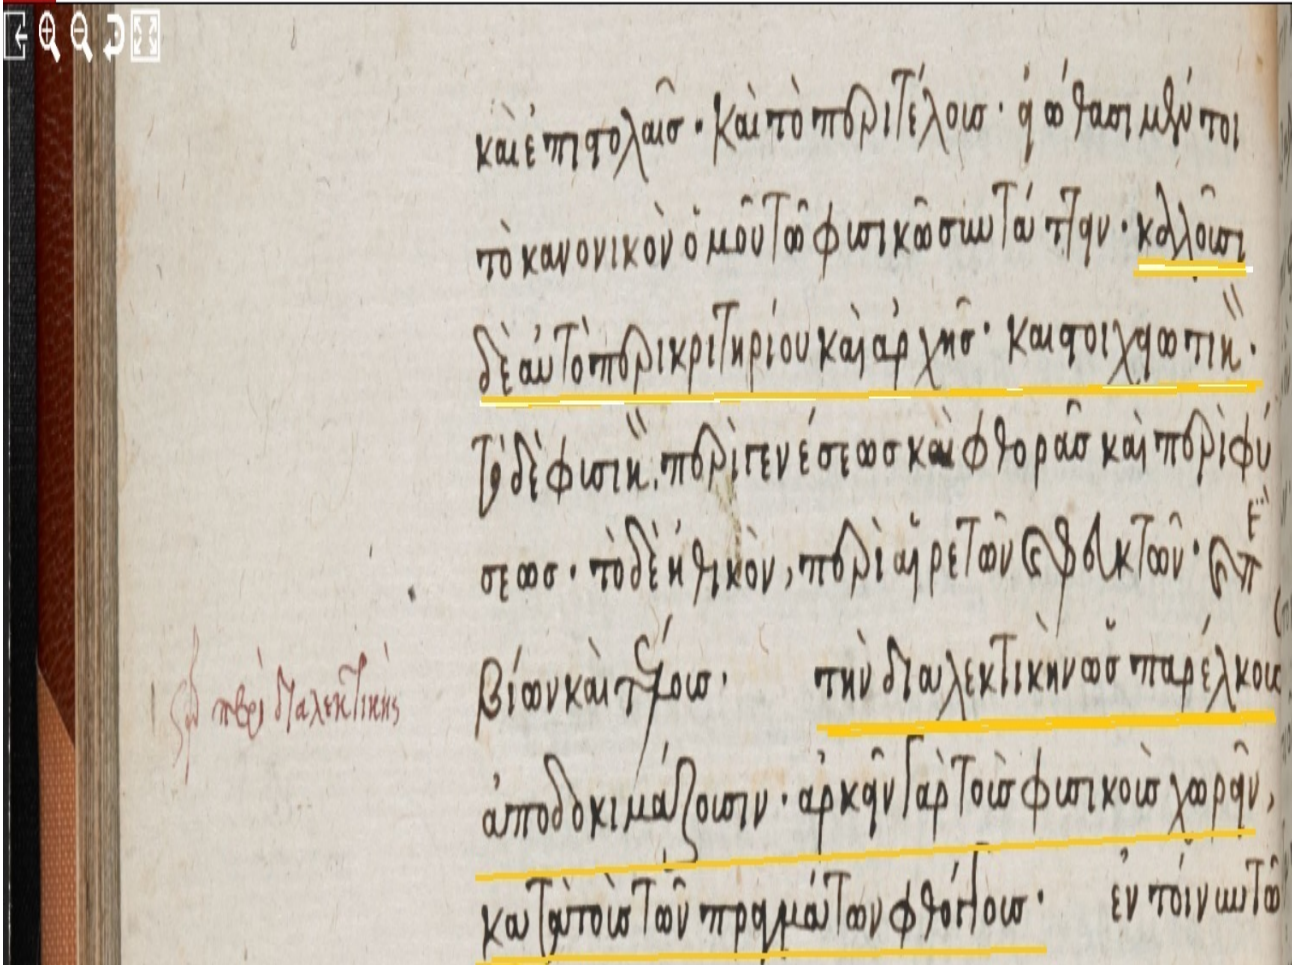 καὶ ἐπιστολαῖς· καὶ τὸ περὶ τέλους· εἰώθασι μέντοι
τὸ κανονικὸν ὁμοῦ τῶ φυσικῶ συντάττειν· καλοῦσι
δὲ αὐτὸ περὶ κριτηρίου καὶ ἀρχῆς· καὶ στοιχειωτικ
τὸ δὲ φυσικ περὶ γενέσεως καὶ φθορᾶς καὶ περὶ φύ
σεως· τὸ δὲ ἠθικὸν, περὶ αἱρετῶν καὶ φευκτῶν· καὶ πε
βίων καὶ τέλους· τὴν διαλεκτικὴν ὡς παρέλκουσ
περὶ διαλεκτικῆς
ἀποδοκιμάζουσιν· ἀρκεῖν γὰρ τοὺς φυσικοὺς χωρεῖν,
κατὰ τοὺς τῶν πραγμάτων φθόγγους· ἐν τοίνυν τῶ